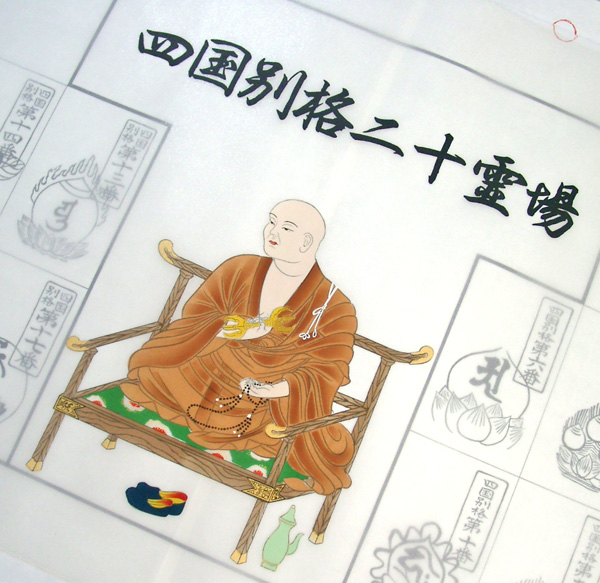 四国別格二十霊場
四国別格第十四番
四国別格第十三番
四国別格第十七番
四国別格第六番
四国別格第十番